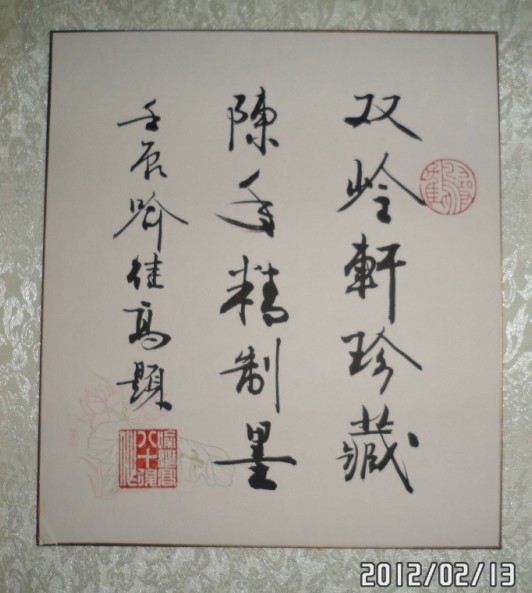 双岭軒珍藏
陳年精制墨
壬辰喻继高題
2012/02/13